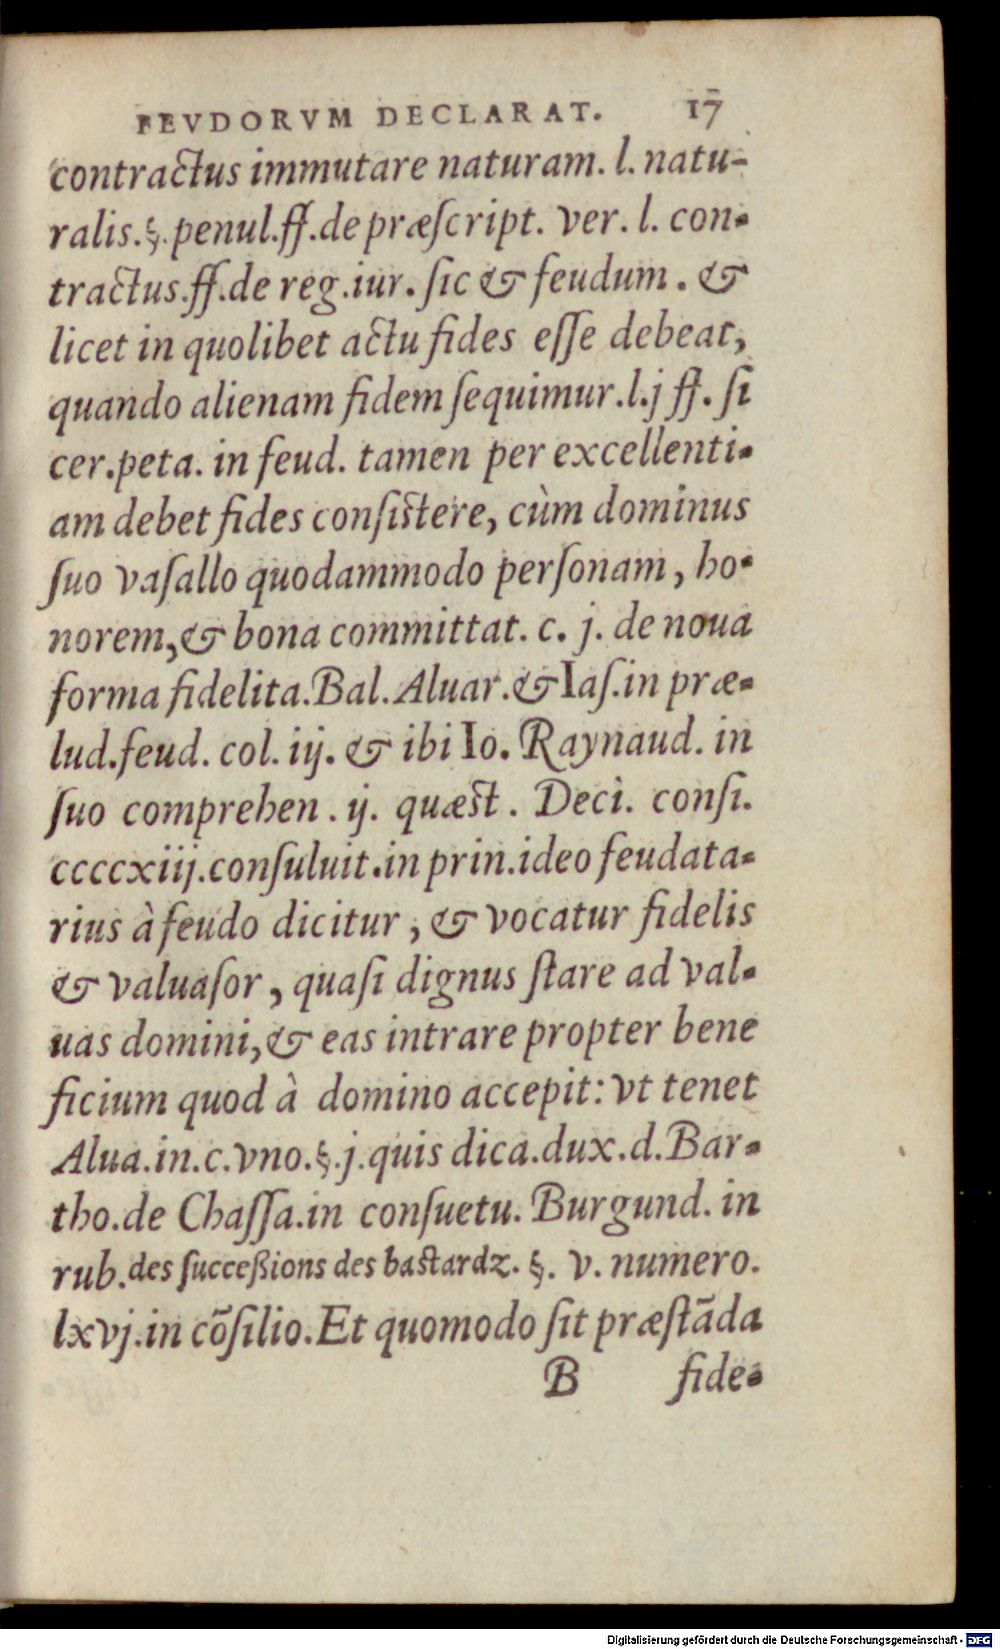 FEVDORVM DECLARAT. 17
contractus immutare naturam. l. natu-
ralis.§.penul.ff.de præſcript. ver. l. con-
tractus.ff.de reg.iur. ſic & feudum. &
licet in quolibet actu fides eſſe debeat,
quando alienam fidem ſequimur.l.j ff. ſi
cer.peta. in feud. tamen per excellenti-
am debet fides conſiſtere, cùm dominus
ſuo vaſallo quodammodo perſonam, ho-
norem,& bona committat. c. j. de noua
forma fidelita.Bal.Aluar.& Iaſ.in præ-
lud.feud. col. iij. & ibi Io. Raynaud. in
ſuo comprehen. ij. quæſt. Deci. conſi.
ccccxiij.conſuluit.in prin.ideo feudata-
rius à feudo dicitur, & vocatur fidelis
& valuaſor, quaſi dignus ſtare ad val-
uas domini,& eas intrare propter bene
ficium quod à domino accepit: vt tenet
Alua.in.c.vno.§.j.quis dica.dux.d.Bar-
tho.de Chaſſa.in conſuetu. Burgund. in
rub.des ſucceßions des baſtardz. §. v. numero.
lxvj.in cõſilio.Et quomodo ſit præſtãda
B fide-
Digitalisierung gefördert durch die Deutsche Forschungsgemeinschaft - DFG